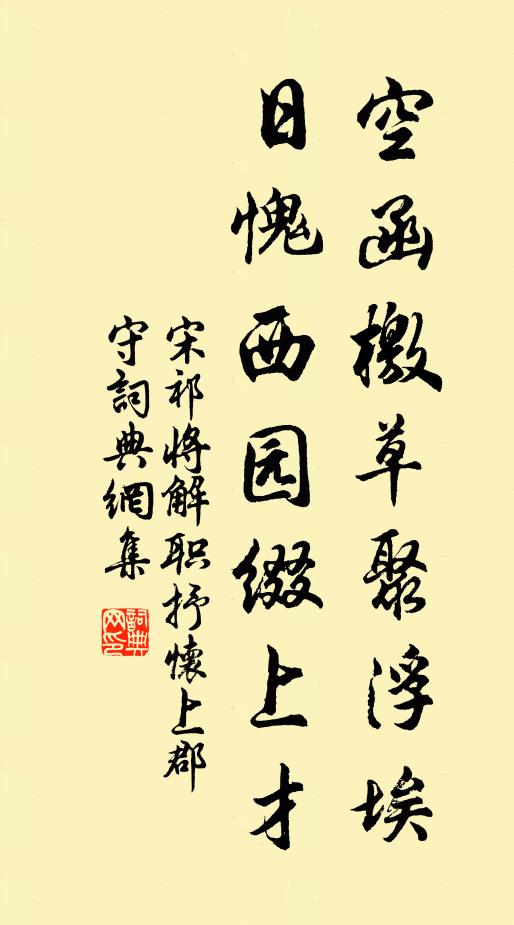 空函檄草聚浮埃
日愧西园缀上才
宋祁将解职抒懷上郡
守詞典網集
詞典
网印